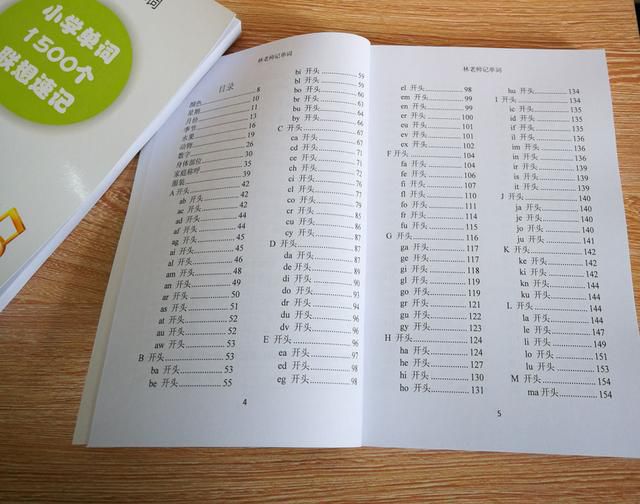 词
小学单词
1500个
联想速记
林老师记单词
目录
颜色........8
星期........10
月份........11
季节........13
水果........16
动物........19
数字........26
身体部位........30
家庭称呼........35
服装........39
A 开头........42
ab 开头........42
ac 开头........42
ad 开头........44
af 开头........44
ag 开头........45
ai 开头........45
al 开头........46
am 开头........48
an 开头........49
ar 开头........50
as 开头........51
at 开头........52
au 开头........52
aw 开头........53
B 开头........53
ba 开头........53
be 开头........55
bi 开头........59
bl 开头
bo 开头
br 开头
bu 开头
by 开头
C 开头
ca 开头
cd 开头
ce 开头
ch 开头
ci 开头
cl 开头
co 开头
cr 开头
cu 开头
cy 开头........87
D 开头........87
da 开头........87
de 开头
di 开头
do 开头
dr 开头........94
du 开头
dv 开头........96
E 开头........96
ea 开头........97
ed 开头........98
eg 开头........98
4
林老师记单词
el 开头........98
em 开头........99
en 开头........99
er 开头........100
eu 开头........101
ev 开头........101
ex 开头........102
F 开头........104
fa 开头........104
fe 开头........106
fi 开头........107
fl 开头........110
fo 开头........111
fr 开头........114
fu 开头........115
G 开头........116
ga 开头........117
ge 开头........117
gi 开头........118
gl 开头........119
go 开头........119
gr 开头........121
gu 开头........122
gy 开头........123
H 开头........124
ha 开头........124
he 开头........127
hi 开头........130
ho 开头........131
hu 开头........134
I 开头........134
ic 开头........135
id 开头........135
if 开头........135
il 开头........136
im 开头........136
in 开头........136
ir 开头........139
is 开头........139
it 开头........139
J 开头........140
ja 开头........140
je 开头........140
jo 开头........140
ju 开头........141
K 开头........142
ke 开头........142
ki 开头........142
kn 开头........144
ku 开头........144
L 开头........144
la 开头........144
le 开头........147
li 开头........149
lo 开头........151
lu 开头........153
M 开头........154
ma 开头........154
5